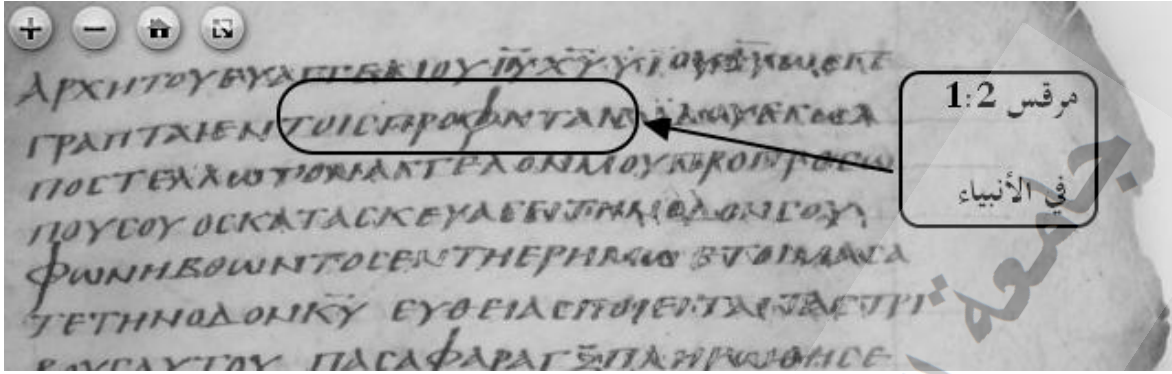 ΑΡΧΗΤΟΥΕΥΑΓΓΕΛΙΟΥ ΙΥ ΧΥ ΥΙΟΥ
ΓΡΑΠΤΑΙΕΝΤΟΙϹΠΡΟΦΗΤΑΙϹ ΙΔΟΥΕΓΩΑ
ΠΟϹΤΕΛΛΩΤΟΝΑΓΓΕΛΟΝΜΟΥΠΡΟΠΡΟϹΩ
ΠΟΥϹΟΥΟϹΚΑΤΑϹΚΕΥΑϹΕΙΤΗΝΟΔΟΝϹΟΥ
ΦΩΝΗΒΟΩΝΤΟϹΕΝΤΗΕΡΗΜΩ ΕΤΟΙΜΑϹΑ
ΤΕΤΗΝΟΔΟΝΚΥ ΕΥΘΕΙΑϹΠΟΙΕΙΤΑΙΤΑϹΤΡΙ
ΒΟΥϹΑΥΤΟΥ ΠΑϹΑΦΑΡΑΓΞΠΛΗΡΩΘΗϹΕ
مرقس 1:2
في الأنبياء
جمعة